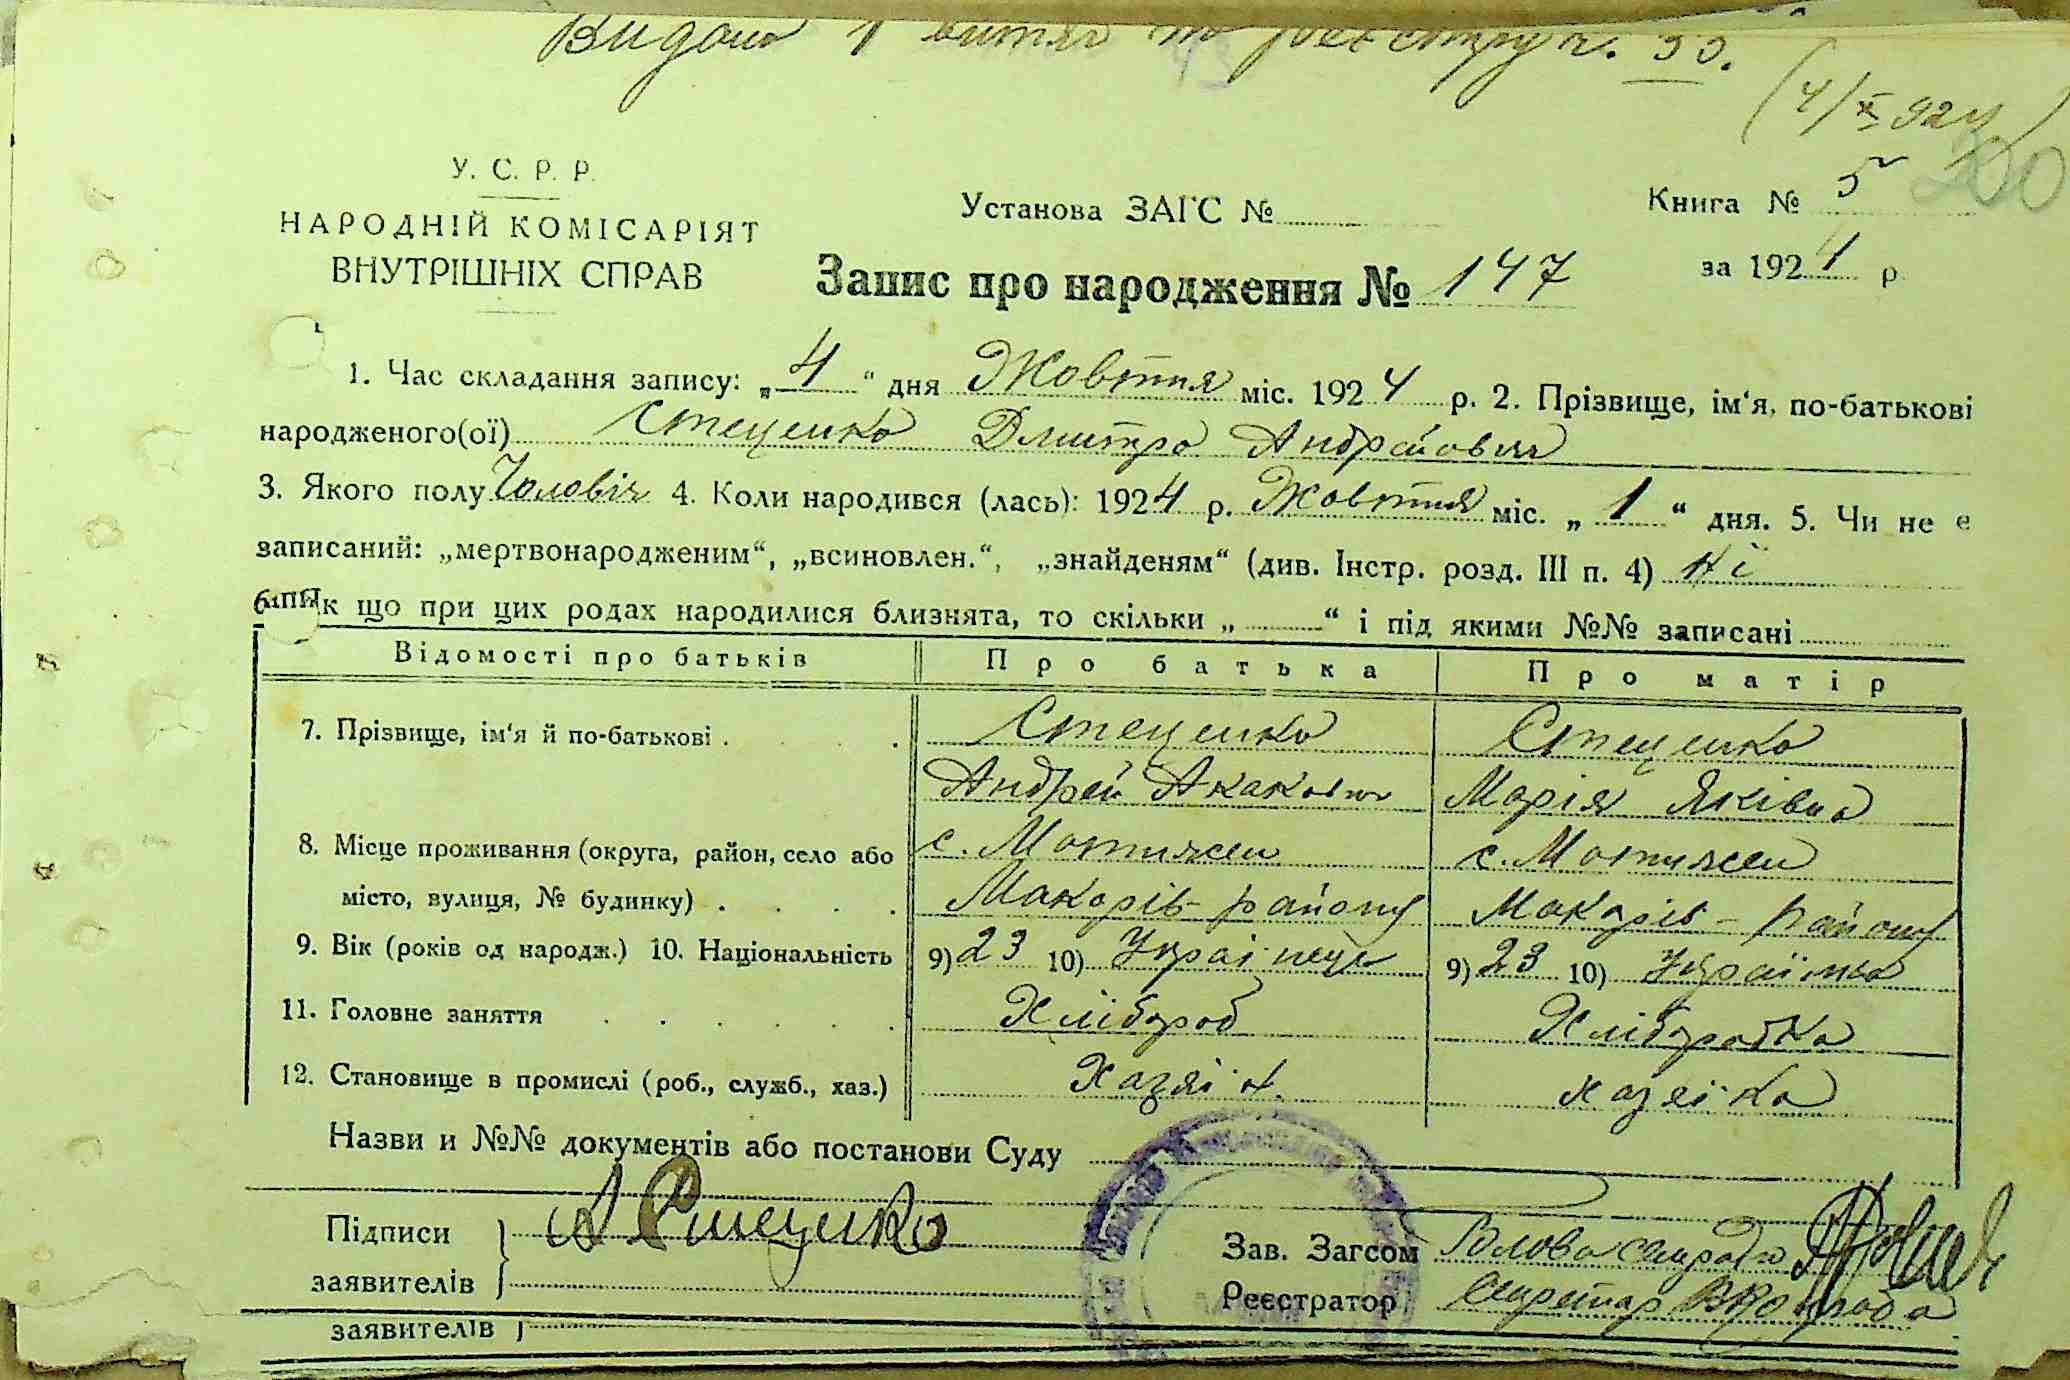 Видано 1 витяг по реєстру ч. 33.
(4/X 924)
200
У. С. Р. Р.
НАРОДНІЙ КОМІСАРІЯТ
ВНУТРІШНІХ СПРАВ
Установа ЗАГС №
Книга № 5
за 1924 р
Запис про народження № 147
1. Час складання запису: „4“ дня Жовтня міс. 1924 р. 2. Прізвище, ім'я, по-батькові
народженого(ої) Стеценко Дмитро Андрійович
3. Якого полу Чоловіч 4. Коли народився (лась): 1924 р. Жовтня міс. „1“ дня. 5. Чи не є
записаний: „мертвонародженим“, „всиновлен.“, „знайденям“ (див. Інстр. розд. III п. 4) Ні
6. Як що при цих родах народилися близнята, то скільки „ “ і під якими №№ записані
Відомості про батьків Про батька Про матір
7. Прізвище, ім'я й по-батькові . . . Стеценко Стеценко
Андрей Акакович Марія Яківна
8. Місце проживання (округа, район, село або с. Мотижен с. Мотижен
місто, вулиця, № будинку) . . . . Макарів-району Макарів-району
9. Вік (років од народж.) 10. Національність 9) 23 10) Українець 9) 23 10) Українка
11. Головне заняття . . . . . . Хлібороб Хліборобка
12. Становище в промислі (роб., служб., хаз.) Хазяїн. хазяїка
Назви и №№ документів або постанови Суду
Підписи
заявителів
А Стеценко
Зав. Загсом Голова сільради
Реєстратор Секретар
заявителів